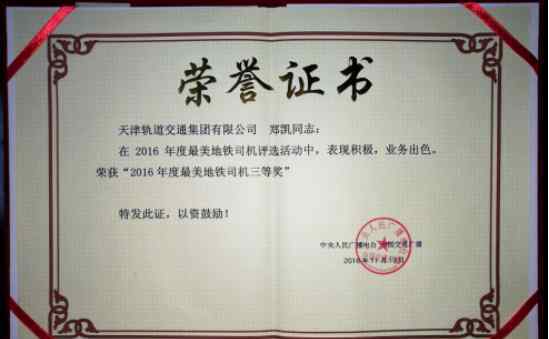 荣誉证书
天津轨道交通集团有限公司 郑凯同志：
在 2016 年度最美地铁司机评选活动中，表现积极，业务出色。
荣获“2016 年度最美地铁司机三等奖”
特发此证，以资鼓励！
中央人民广播电台 交通广播
2016 年 11 月